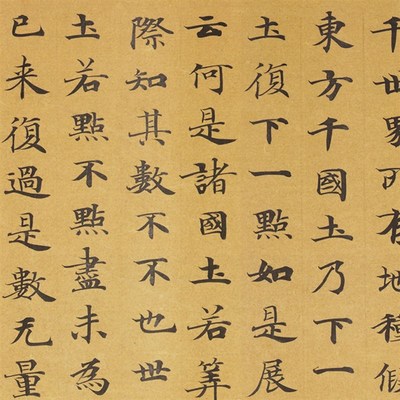 千世界所有地種假
東方千國土乃下一
土復下一點如是展
云何是諸國土若筭
際知其數不不也世
土若點不點盡末為
已来復過是數无量